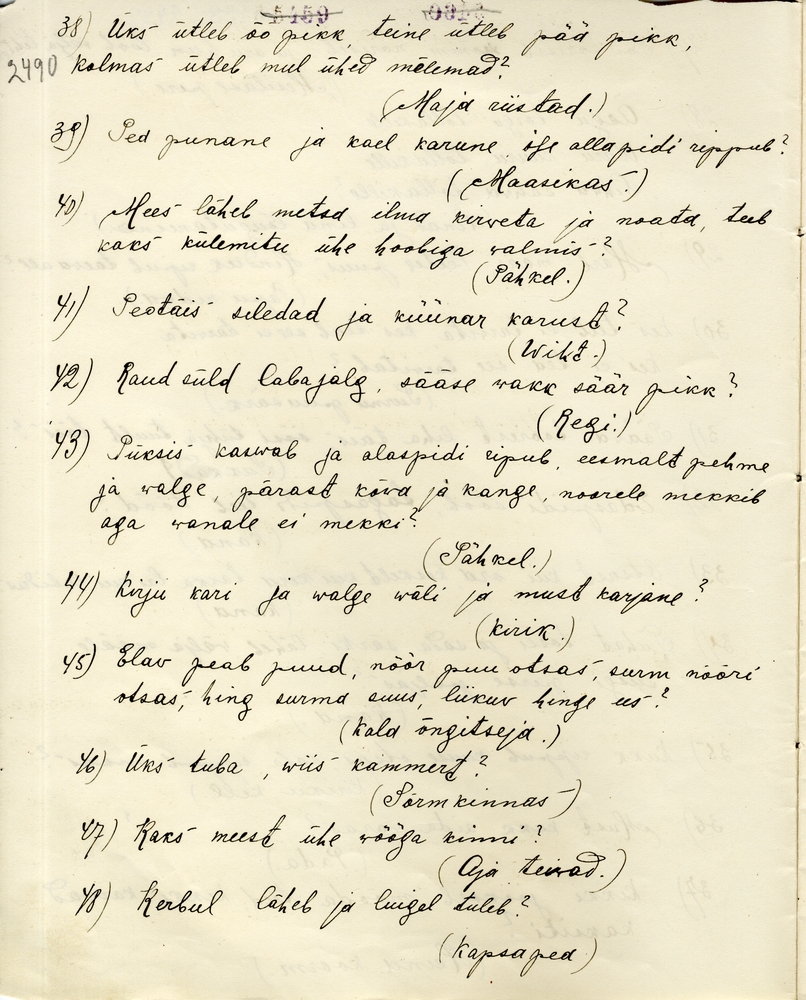 38) Üks ütleb öö pikk, teine ütleb pää pikk,
2490 kolmas ütleb mul ühed mõlemad?
(Maja riistad.)
39) Ped punane ja kael karune, ise allapidi rippub?
(Maasikas.)
40) Mees läheb metsa ilma kirweta ja noata, teeb
kaks külemitu ühe hoobiga walmis?
(Pähkel.)
41) Peotäis siledad ja küünar karust?
(Wiht.)
42) Raud süld labajalg, sääse wakk säär pikk?
(Regi.)
43) Püksis kaswab ja alaspidi ripub, eesmalt pehme
ja walge, pärast kõwa ja kange, noorele mekkib
aga wanale ei mekki?
(Pähkel.)
44) Kirju kari ja walge wäli ja must karjane?
(Kirik.)
45) Elav peab puud, nöör puu otsas, surm nööri
otsas, hing surma suus, liikuv hinge ees?
(Kala õngitseja.)
46) Üks tuba, wiis kammert?
(Sõrmkinnas)
47) Kaks meest ühe wööga kinni?
(Aja teiwad.)
48) Kerbul läheb ja luigel tuleb?
(Kapsapea)